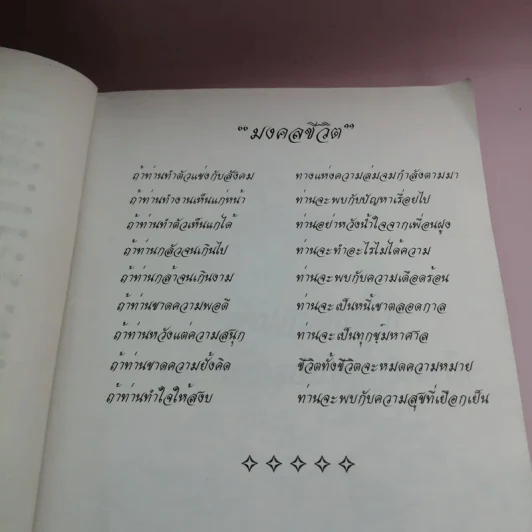 "มงคลชีวิต"
ถ้าท่านทำตัวแข่งกับสังคม ทางแห่งความล่มจมกำลังตามมา
ถ้าท่านทำงานเห็นแก่หน้า ท่านจะพบกับปัญหาเรื่อยไป
ถ้าท่านทำตัวเห็นแก่ได้ ท่านอย่าหวังน้ำใจจากเพื่อนฝูง
ถ้าท่านกลัวจนเกินไป ท่านจะทำอะไรไม่ได้ความ
ถ้าท่านกล้าจนเกินงาม ท่านจะพบกับความเดือดร้อน
ถ้าท่านขาดความพอดี ท่านจะเป็นหนี้เขาตลอดกาล
ถ้าท่านหวังแต่ความสนุก ท่านจะเป็นทุกข์มหาศาล
ถ้าท่านขาดความยั้งคิด ชีวิตทั้งชีวิตจะหมดความหมาย
ถ้าท่านทำใจให้สงบ ท่านจะพบกับความสุขที่เยือกเย็น